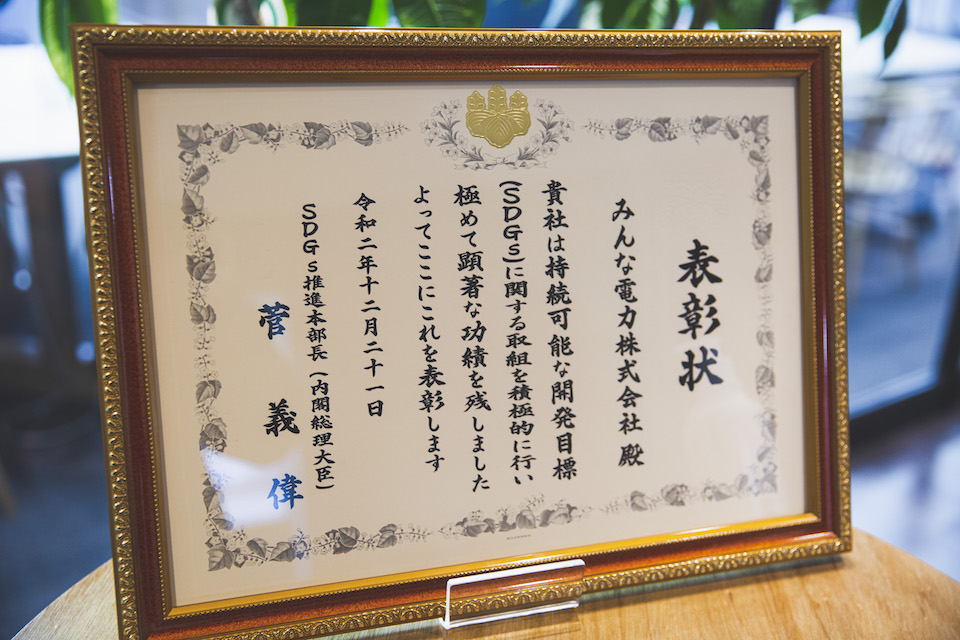 表彰状
みんな電力株式会社 殿
貴社は持続可能な開発目標
(SDGs)に関する取組を積極的に行い
極めて顕著な功績を残しました
よってここにこれを表彰します
令和二年十二月二十一日
SDGs推進本部長(内閣総理大臣)
菅義偉